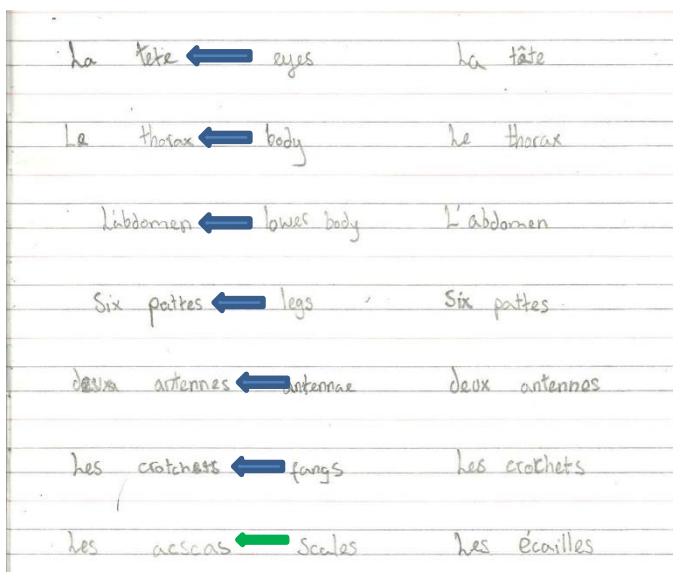 La tete eyes La tâte
Le thorax body Le thorax
L'abdomen lower body L'abdomen
Six pattes legs Six pattes
deux antennes antennae deux antennes
Les crotchets fangs Les crotchets
Les acscas Scales Les écailles